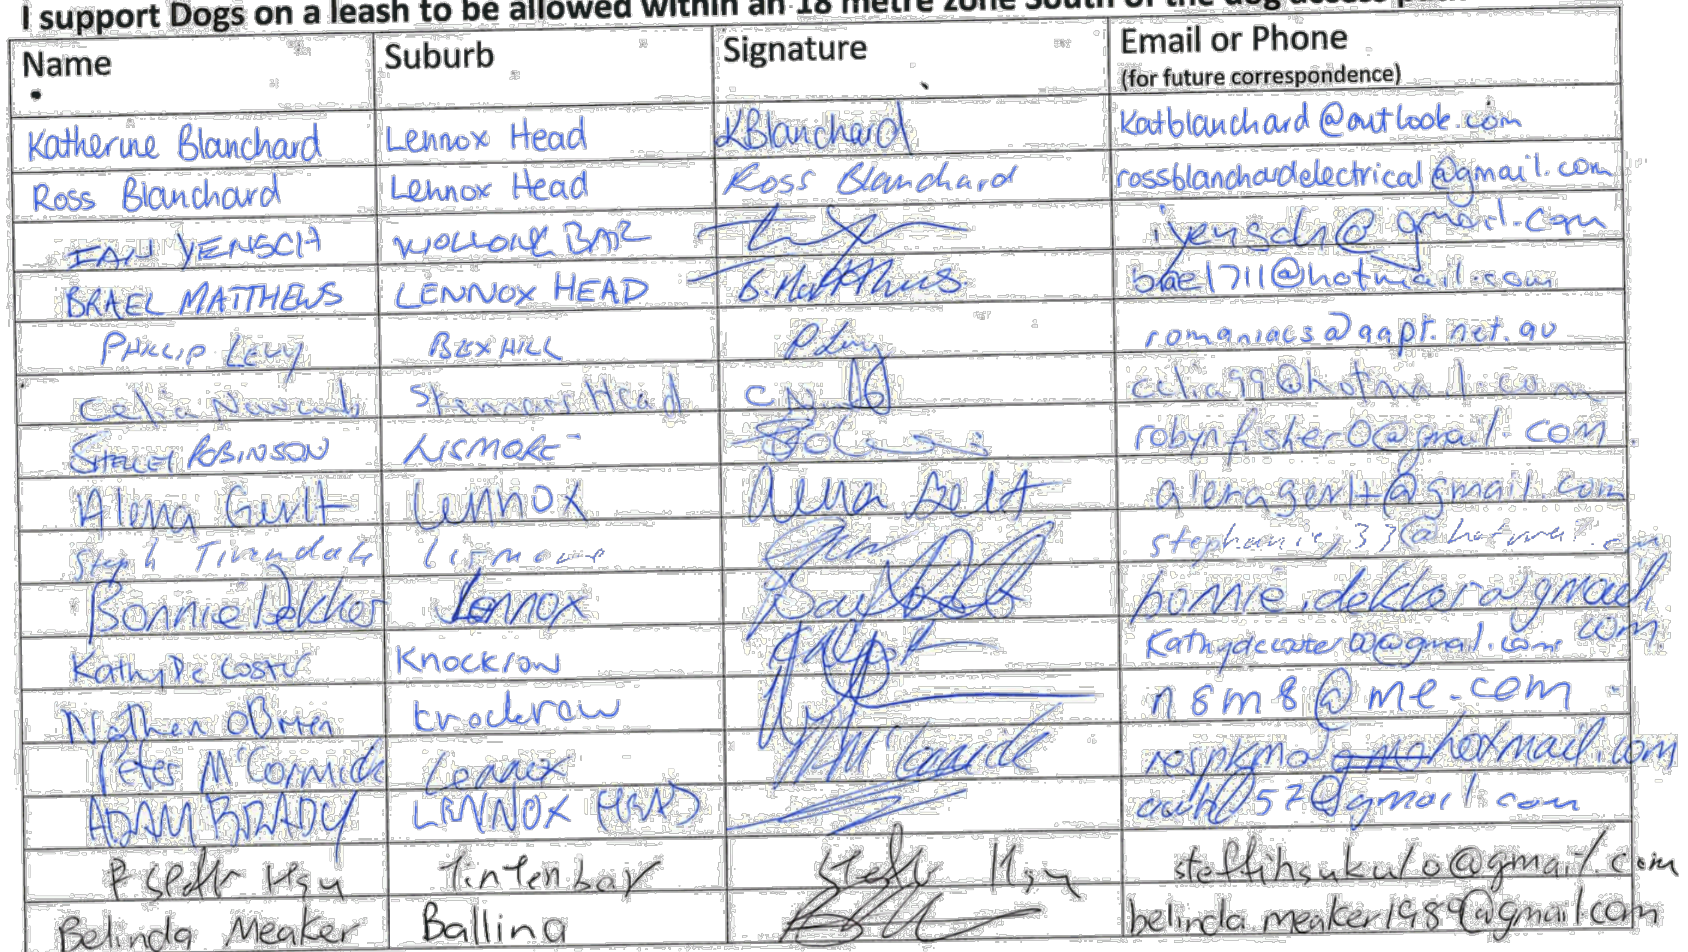 I support Dogs on a leash to be allowed within an 18 metre zone South of the dog access
Name Suburb Signature Email or Phone
(for future correspondence)
Katherine Blanchard Lennox Head KBlanchard Katblanchard@outlook.com
Ross Blanchard Lennox Head Ross Blanchard rossblanchardelectrical@gmail.com
IAIN YENSCH WOLLONG BAR iyensch@gmail.com
BRAEL MATTHEWS LENNOX HEAD B.Matthews brael711@hotmail.com
PHILLIP LEVY BEXHILL PLevy romaniacs@aapt.net.au
Celia Head celia99@hotmail.com
ROBINSON LISMORE robynfisher0@gmail.com
Alena Gerlt Lennox Alena Gerlt alenagerlt@gmail.com
Steph Tirendale Lismore
Bonnie Dekker Lennox bonnie.dekker@gmail.com
Kathy De Coster Knockrow @gmail.com
Nathen OBrien knockrow n8m8@me.com
Peter McCormick Lennox hotmail.com
ADAM BRADY LENNOX HEAD @gmail.com
Hsu Tintenbar Steffi Hsu steffihsukulo@gmail.com
Belinda Meaker Ballina belinda.meaker1989@gmail.com